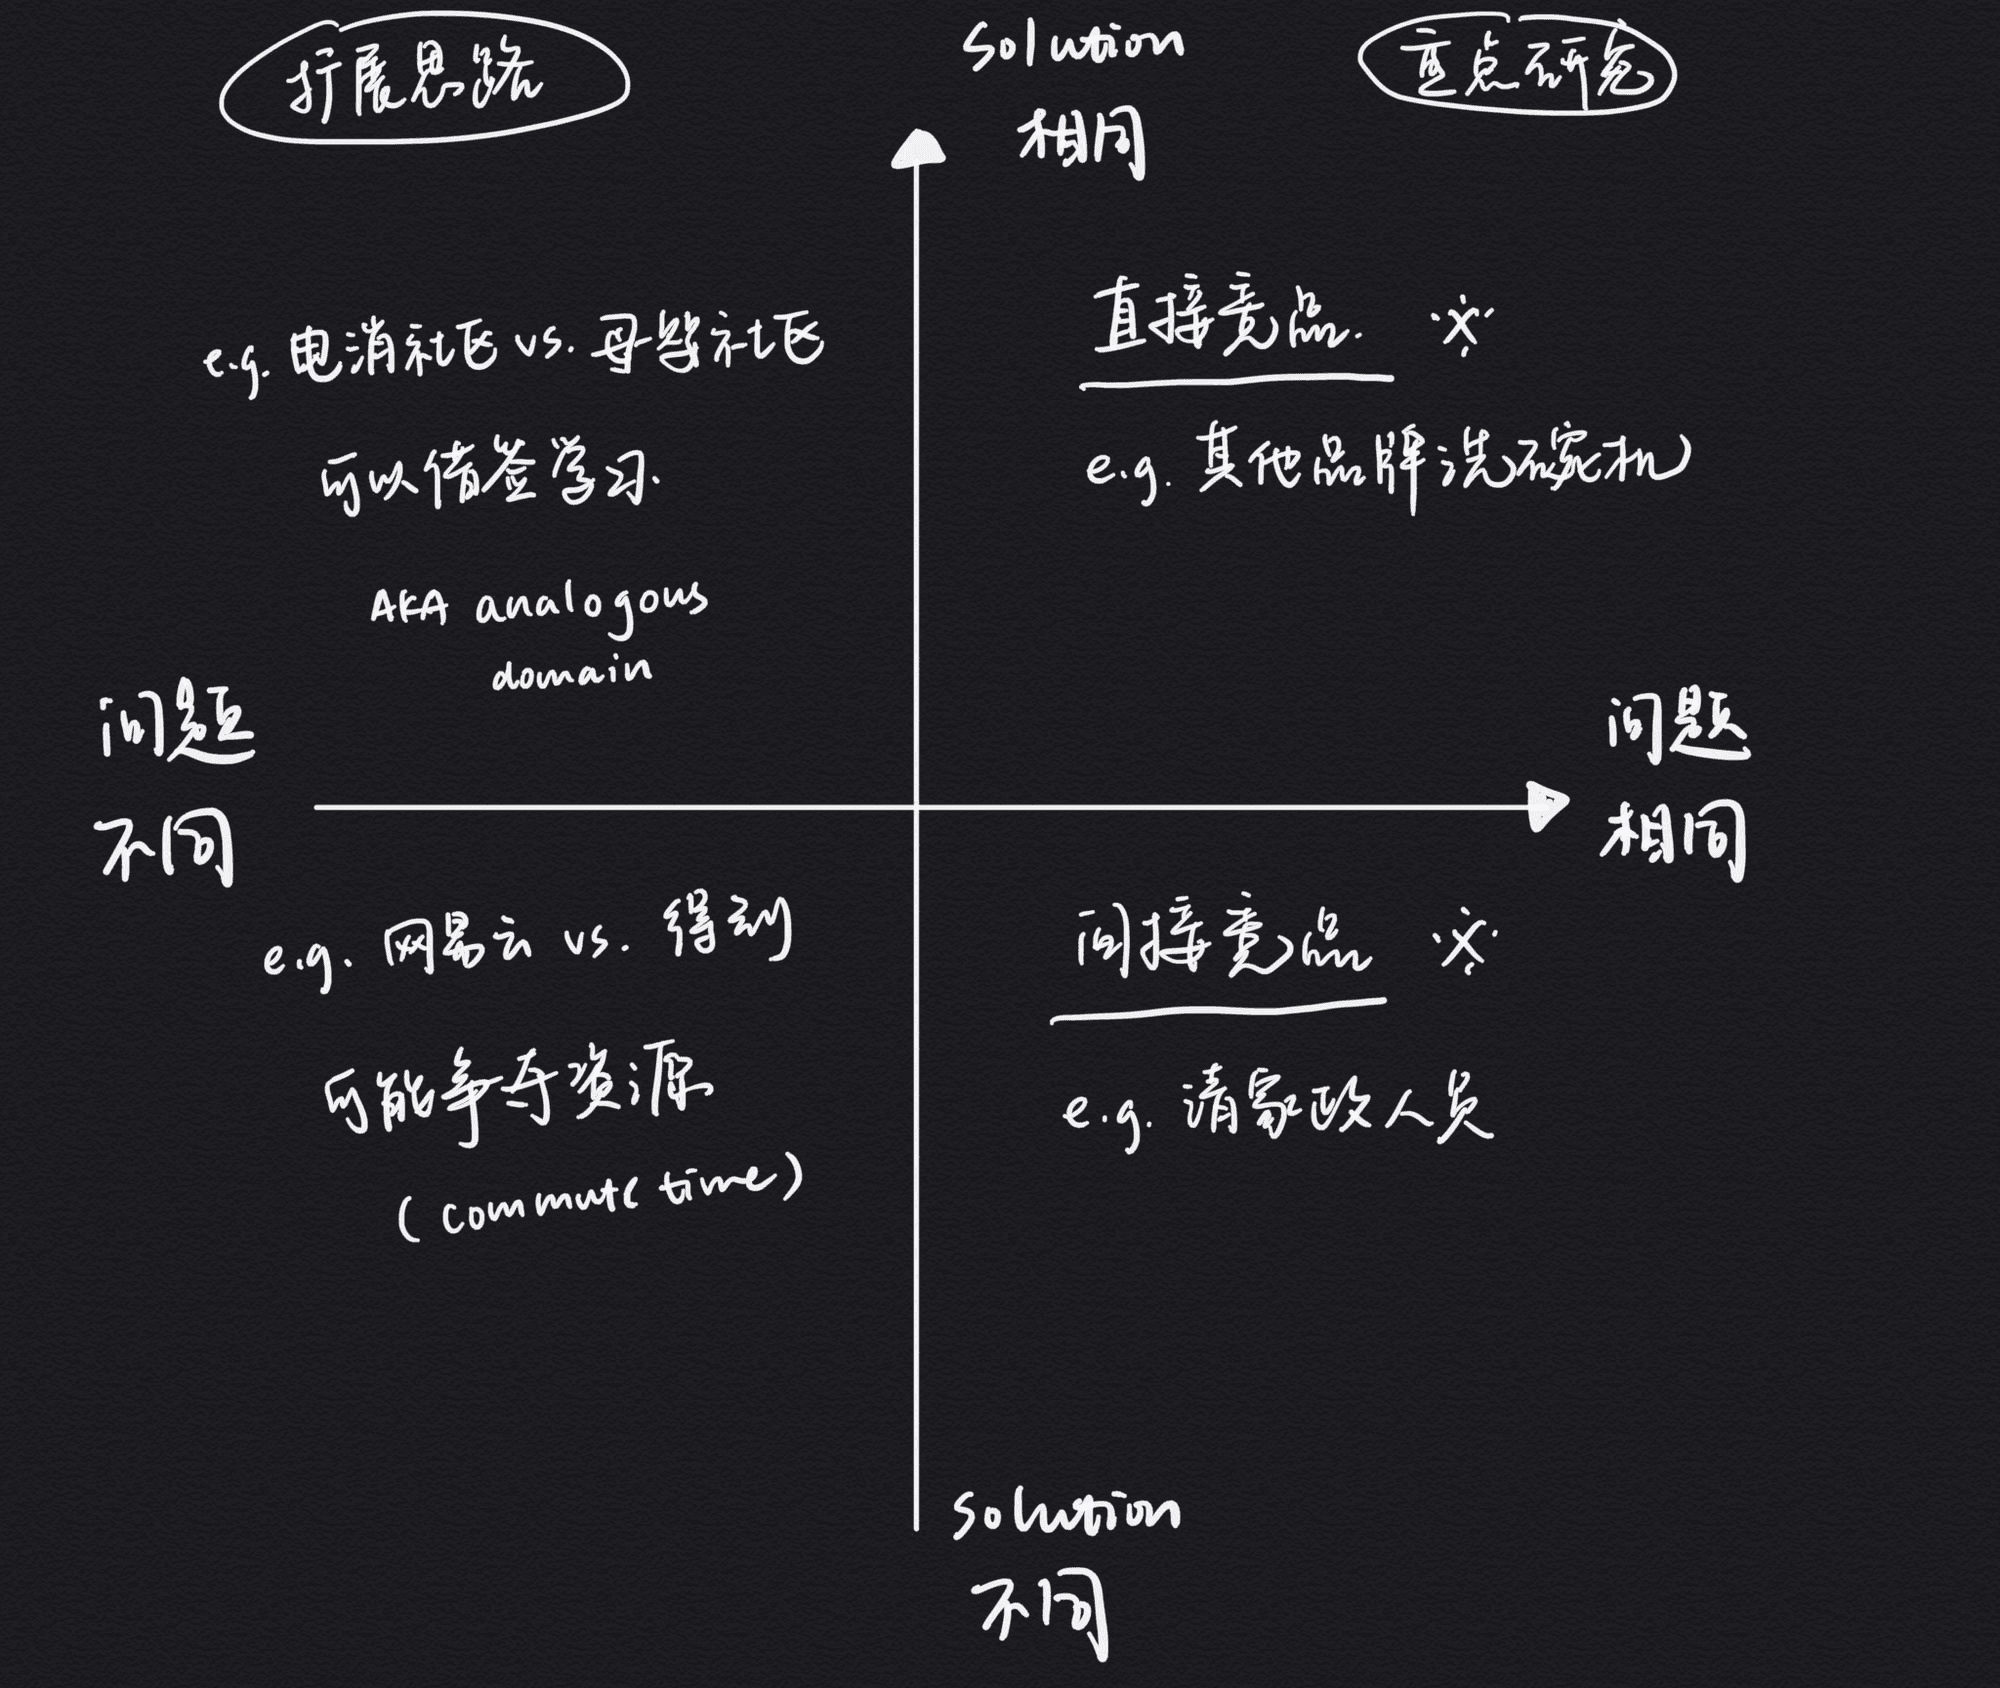 扩展思路
solution
相同
重点研究
e.g. 电消社区 vs. 母婴社区
可以借签学习.
AKA analogous
domain
直接竞品.
e.g. 其他品牌洗碗机
问题
不同
问题
相同
e.g. 网易云 vs. 得到
可能争夺资源
(commute time)
间接竞品
e.g. 请家政人员
solution
不同